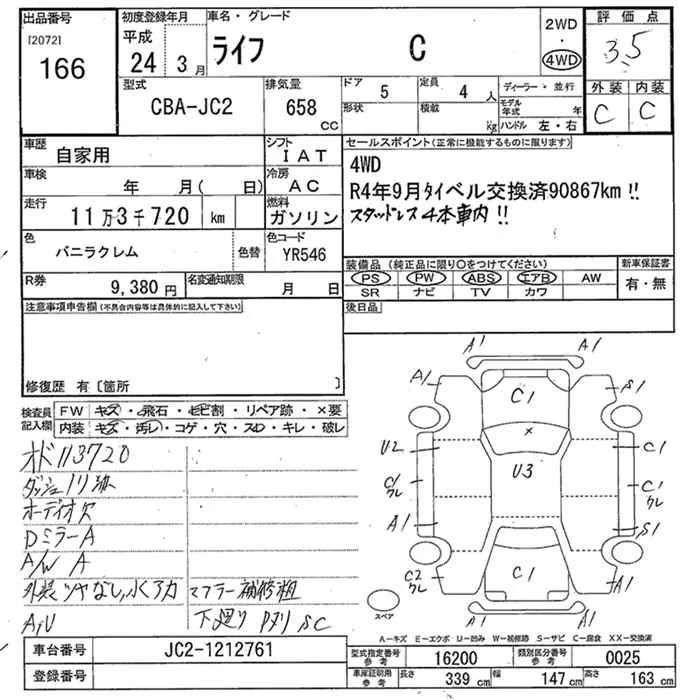 出品番号 初度登録年月 車名・グレード 2WD・4WD 評価点
[2072] 166 平成 24 3月 ライフ C 3.5
型式 排気量 ドア 5 定員 4人 ディーラー・並行 外装 内装
CBA-JC2 658cc 形状 積載 kg モデル年式 年 ハンドル 左・右 C C
車歴 自家用 シフト IAT セールスポイント(正常に機能するものに限ります)
車検 年 月(日) 冷房 AC 4WD
走行 11万3千720 km 燃料 ガソリン R4年9月タイベル交換済90867km !!
スタッドレス4本車内 !!
色 バニラクレム 色替 色コード YR546
装備品(純正品に限り○をつけてください) 新車保証書
R券 9,380円 名変通知期限 月 日 PS PW ABS エアB AW 有・無
SR ナビ TV カワ
注意事項申告欄(不具合内容等は具体的に記入して下さい) 後日品
修復歴 有〔箇所 〕
検査員記入欄 FW キズ・飛石・ヒビ割・リペア跡・×要
内装 キズ・汚レ・コゲ・穴・スレ・キレ・破レ
オド113720
ダッシュノリ染
オーディオ欠
DミラーA
A/W A
外装ツヤなし,水アカ マフラー補修粗
A,U 下廻り Pヌリ SC
A1 A1
A1 C1 S1
×
U2 U3 C1
C/クレ C1クレ
A1 S1
C2クレ C1 A1
スペア
A1 A1
A-キズ E-エクボ U-凹み W-補修跡 S-サビ C-腐食 XX-交換済
車台番号 JC2-1212761 型式指定番号 参考 16200 類別区分番号 参考 0025
登録番号 車庫証明用 参考 長さ 339 cm 幅 147 cm 高さ 163 cm